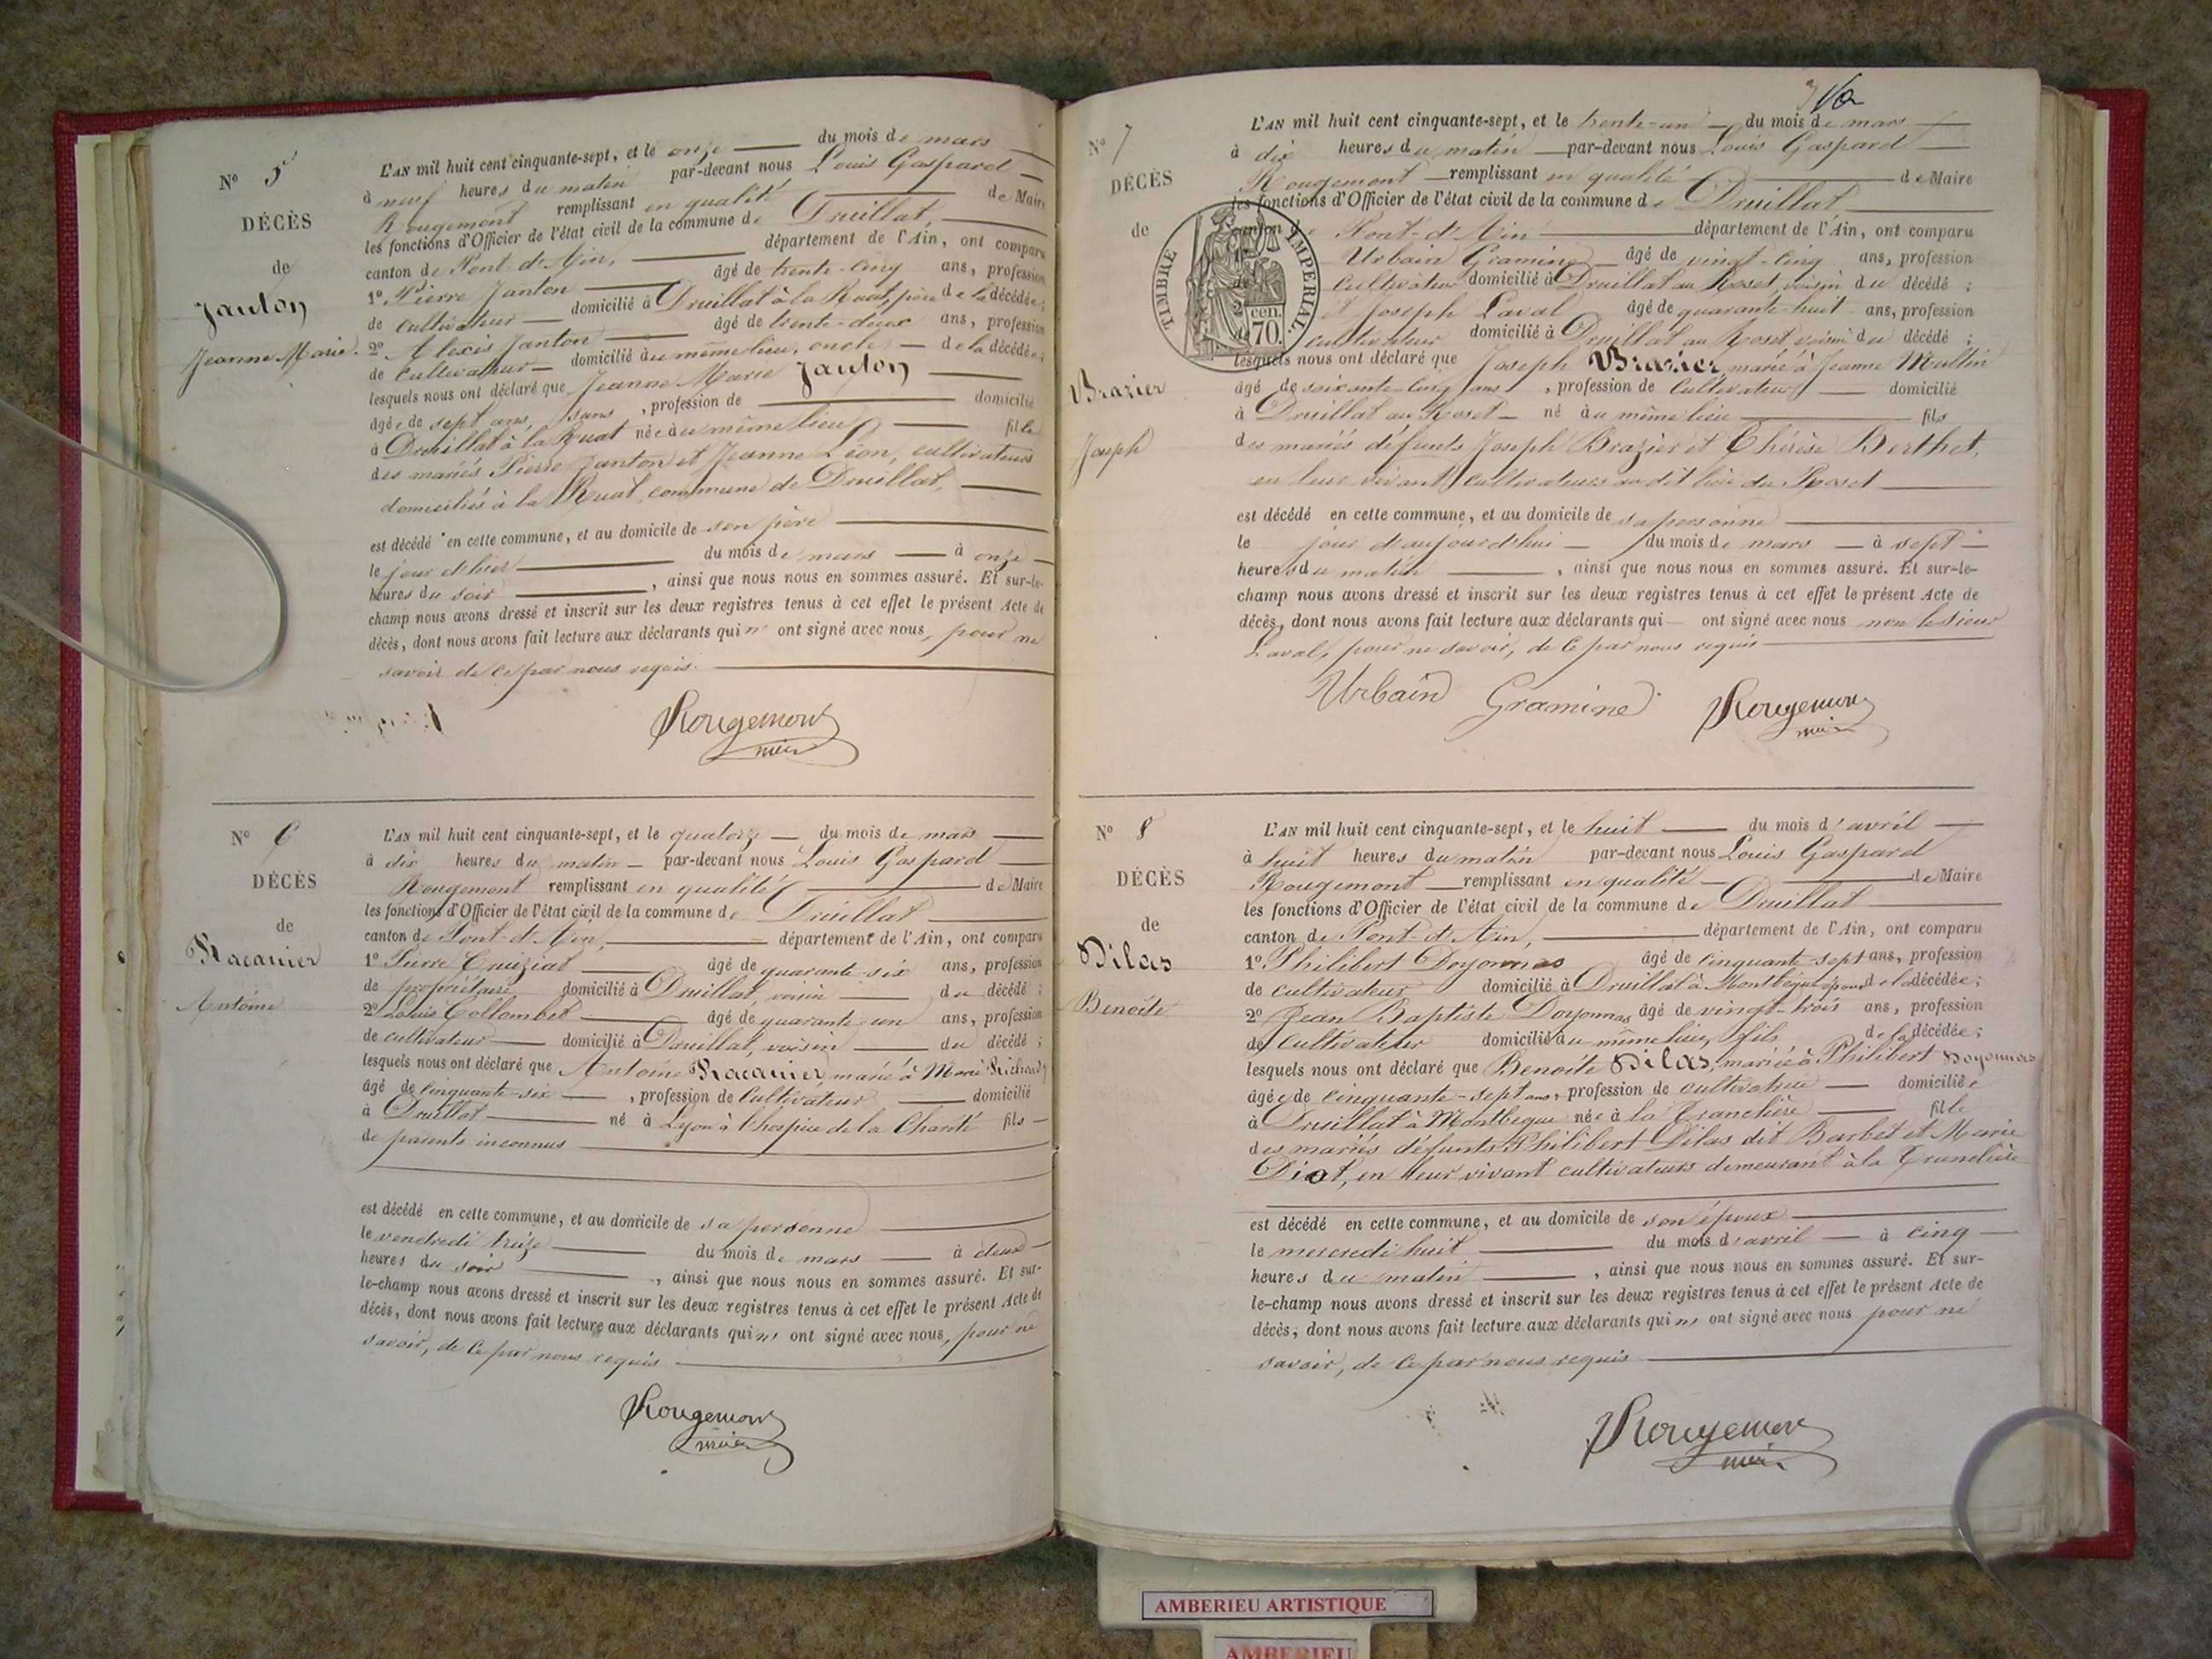 N° 5
DÉCÈS
de
Janton
Jeanne Marie.
L'AN mil huit cent cinquante-sept, et le onze du mois de mars
à neuf heures du matin par-devant nous Louis Gaspard
Rougemont remplissant en qualité de Maire
les fonctions d'Officier de l'état civil de la commune de Druillat,
canton de Pont-d'Ain, département de l'Ain, ont comparu
1° Pierre Janton âgé de trente-cinq ans, profession
de cultivateur domicilié à Druillat à la Ruat, père de la décédée;
2° Alexis Janton âgé de trente-deux ans, profession
de cultivateur domicilié au même lieu, oncle de la décédée;
lesquels nous ont déclaré que Jeanne Marie Janton
âgée de sept ans, sans, profession de domicilié
à Druillat à la Ruat née au même lieu fille
des mariés Pierre Janton et Jeanne Léon, cultivateurs
domiciliés à la Ruat, commune de Druillat,
est décédé en cette commune, et au domicile de son père
le jour d'hier du mois de mars à onze
heures du soir, ainsi que nous nous en sommes assuré. Et sur-le-
champ nous avons dressé et inscrit sur les deux registres tenus à cet effet le présent Acte de
décès, dont nous avons fait lecture aux déclarants qui n' ont signé avec nous, pour ne
savoir de ce par nous requis.
Rougemont
maire
N° 6
DÉCÈS
de
Racanier
Antoine
L'AN mil huit cent cinquante-sept, et le quatorze du mois de mars
à dix heures du matin par-devant nous Louis Gaspard
Rougemont remplissant en qualité de Maire
les fonctions d'Officier de l'état civil de la commune de Druillat
canton de Pont-d'Ain, département de l'Ain, ont comparu
1° Pierre Cruiziat âgé de quarante-six ans, profession
de propriétaire domicilié à Druillat, voisin du décédé;
2° Louis Collombet âgé de quarante-un ans, profession
de cultivateur domicilié à Druillat, voisin du décédé;
lesquels nous ont déclaré que Antoine Racanier, marié à Marie Richard
âgé de cinquante-six, profession de cultivateur domicilié
à Druillat né à Lyon à l'hospice de la Charité fils
de parents inconnus
est décédé en cette commune, et au domicile de sa personne
le vendredi treize du mois de mars à deux
heures du soir, ainsi que nous nous en sommes assuré. Et sur-
le-champ nous avons dressé et inscrit sur les deux registres tenus à cet effet le présent Acte de
décès, dont nous avons fait lecture aux déclarants qui n' ont signé avec nous, pour ne
savoir, de ce par nous requis
Rougemont
maire
N° 7
DÉCÈS
de
Brazier
Joseph
TIMBRE IMPERIAL.
cen.
70.
L'AN mil huit cent cinquante-sept, et le trente-un du mois de mars
à dix heures du matin par-devant nous Louis Gaspard
Rougemont remplissant en qualité de Maire
les fonctions d'Officier de l'état civil de la commune de Druillat
canton de Pont-d'Ain département de l'Ain, ont comparu
Urbain Gramine âgé de vingt-cinq ans, profession
cultivateur domicilié à Druillat au Roset, voisin du décédé;
Joseph Laval âgé de quarante-huit ans, profession
cultivateur domicilié à Druillat au Roset voisin du décédé;
lesquels nous ont déclaré que Joseph Brazier, marié à Jeanne Moullin
âgé de soixante-cinq ans, profession de cultivateur domicilié
à Druillat au Roset né au même lieu fils
des mariés défunts Joseph Brazier et Thérèse Berthet,
en leur vivant cultivateurs au dit lieu du Roset
est décédé en cette commune, et au domicile de sa personne
le jour d'aujourd'hui du mois de mars à sept
heures du matin, ainsi que nous nous en sommes assuré. Et sur-le-
champ nous avons dressé et inscrit sur les deux registres tenus à cet effet le présent Acte de
décès, dont nous avons fait lecture aux déclarants qui ont signé avec nous non le sieur
Laval, pour ne savoir, de ce par nous requis
Urbain Gramine Rougemont
maire
N° 8
DÉCÈS
de
Dilas
Benoite
L'AN mil huit cent cinquante-sept, et le huit du mois d'avril
à huit heures du matin par-devant nous Louis Gaspard
Rougemont remplissant en qualité de Maire
les fonctions d'Officier de l'état civil de la commune de Druillat
canton de Pont-d'Ain, département de l'Ain, ont comparu
1° Philibert Doyonnas âgé de cinquante-sept ans, profession
de cultivateur domicilié à Druillat à Montbègue époux de la décédée;
2° Jean Baptiste Doyonnas âgé de vingt-trois ans, profession
de cultivateur domicilié au même lieu, fils de la décédée;
lesquels nous ont déclaré que Benoite Dilas, mariée à Philibert Doyonnas
âgée de cinquante-sept ans, profession de cultivatrice domiciliée
à Druillat à Montbegue née à la Tranclière fille
des mariés défunts Philibert Dilas dit Barbet et Marie
Diot, en leur vivant cultivateurs demeurant à la Tranclière
est décédé en cette commune, et au domicile de son époux
le mercredi huit du mois d'avril à cinq
heures du matin, ainsi que nous nous en sommes assuré. Et sur-
le-champ nous avons dressé et inscrit sur les deux registres tenus à cet effet le présent Acte de
décès, dont nous avons fait lecture aux déclarants qui n' ont signé avec nous pour ne
savoir, de ce par nous requis
Rougemont
maire
AMBERIEU ARTISTIQUE
AMBERIEU